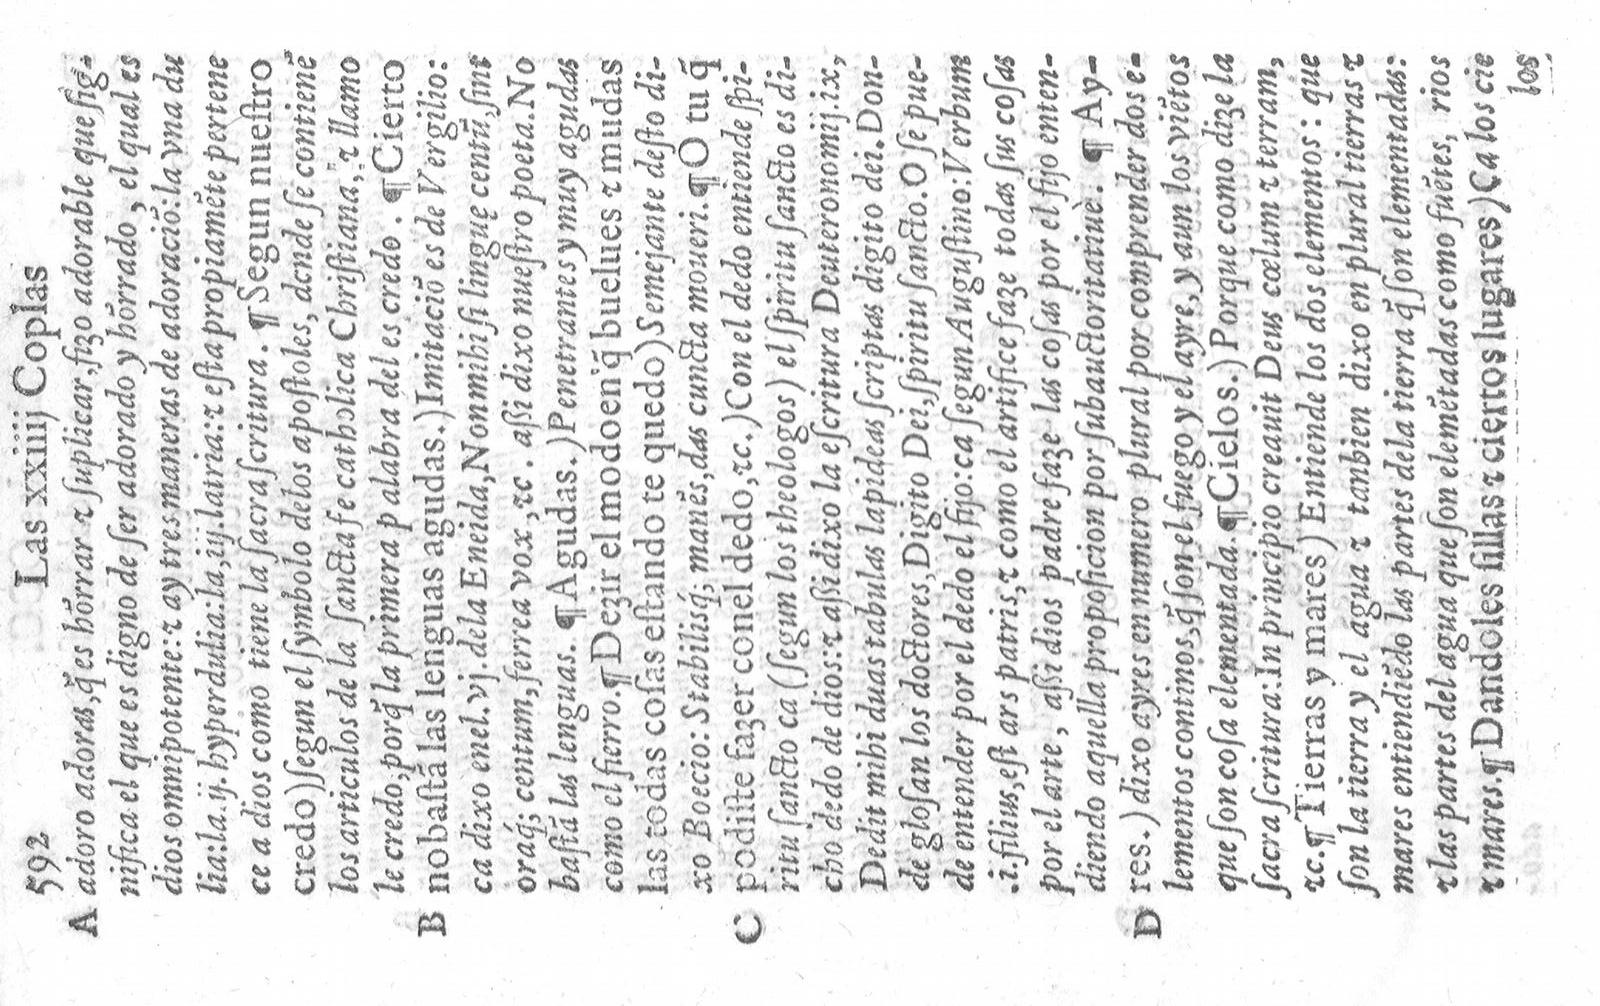 592 Las xxiiij Coplas
A adoro adoras, q̃ es hõrrar ⁊ ſuplicar, fizo adorable que ſig-
nifica el que es digno de ſer adorado y hõrrado, el qual es
dios omnipotente: ⁊ ay tres maneras de adoraciõ: la vna du
lia: la .ij. hyperdulia: la, iij. latria: ⁊ eſta propiamẽte pertene
ce a dios como tiene la ſacra ſcritura. ¶ Segun nueſtro
credo) ſegun el ſymbolo delos apoſtoles, donde ſe contienẽ
los articulos de la ſancta fe catholica Chriſtiana, ⁊ llamo
le credo, porq̃ la primera palabra del es credo. ¶ Cierto
B nobaſtã las lenguas agudas.) Imitaciõ es de Vergilio:
ca dixo enel. vj. dela Eneida, Non mihi ſi linguę centũ, ſint
oraq́; centum, ferrea vox, ⁊c. aſsi dixo nueſtro poeta. No
baſtã las lenguas. ¶ Agudas.) Penetrantes y muy agudas
como el fierro. ¶ Dezir el modo en q̃ buelues ⁊ mudas
las todas coſas eſtando te quedo) Semejante deſto di-
xo Boecio: Stabiliſq́; manẽs, das cuncta moueri. ¶ O tu q̃
C podiſte fazer conel dedo, ⁊c.) Con el dedo entiende ſpi-
ritu ſancto ca (ſegun los theologos) el ſpiritu ſancto es di-
cho dedo de dios: ⁊ aſsi dixo la eſcritura Deuteronomij. ix,
Dedit mihi duas tabulas lapideas ſcriptas digito dei. Don-
de gloſan los doctores, Digito Dei, ſpiritu ſancto. O ſe pue-
de entender por el dedo el fijo: ca ſegun Auguſtino. Verbum
.i. filius, eſt ars patris, ⁊ como el artifice faze todas ſus coſas
por el arte, aſsi dios padre faze las coſas por el fijo enten-
diendo aquella propoſicion por ſubauctoritatiuè. ¶ Ay-
D res.) dixo ayres en numero plural por comprender dos e-
lementos continos, q̃ ſon el fuego y el ayre, y aun los viẽtos
que ſon coſa elementada. ¶ Cielos.) Porque como dize la
ſacra ſcritura: In principio creauit Deus cœlum ⁊ terram,
⁊c. ¶ Tierras y mares) Entiende los dos elementos: que
ſon la tierra y el agua ⁊ tanbien dixo en plural tierras ⁊
mares entendiẽdo las partes dela tierra q̃ ſon elementadas:
⁊ las partes del agua que ſon elemẽtadas como fuẽtes, rios
⁊ mares ¶ Dandoles ſillas ⁊ ciertos lugares) Ca los cie
los